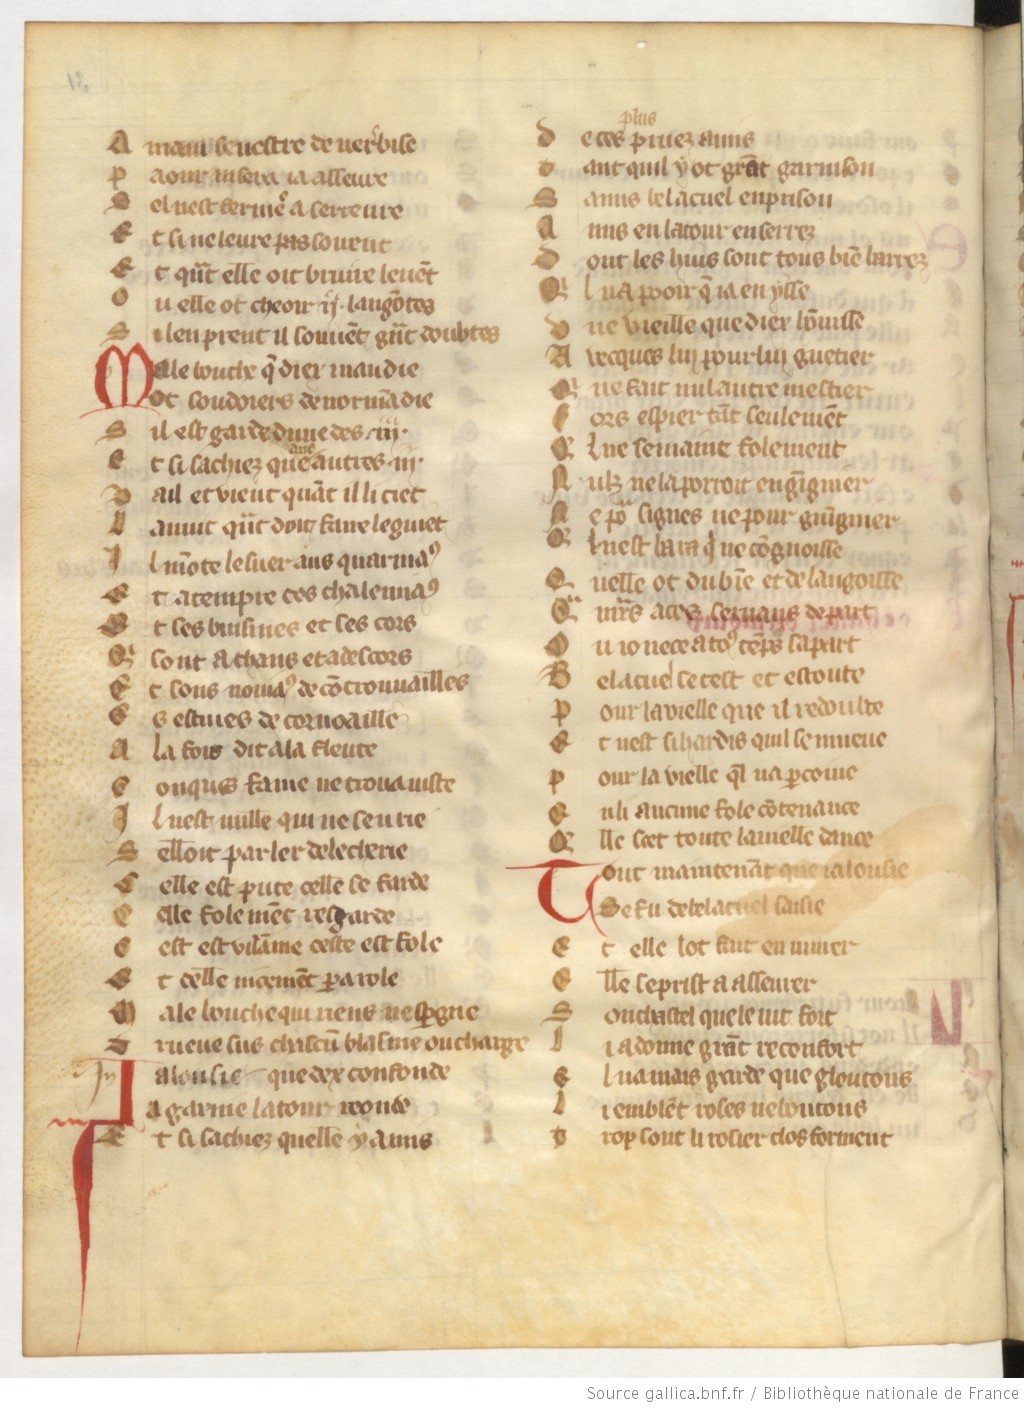 A main senestre de uerbise
P aour ausera ia asseure
D el uest fermer a serreure
E t si ne leure pas souent
E t qnt elle oit bruire leuent
O u elle ot cheoir .ij. langotes
S i len prent il souuent gnt doubtes
Male bouche q dier maudie
Ot soudoiers de normadie
S il est garde dune des .iij.
E t si sachiez que aus autres .iij.
V ail et uient quant il li ciet
L anuit qnt doit faire leguiet
I l monte le suer aus quarniaus
E t atempre ces chalemiaus
E t ses buisines et ses cors
Q sont achans et a descors
E t sons nouiaus de controuuailles
E s estiues de cornoaille
A la fois dit a la fleute
C onques fame ne troua iuste
I l nest nulle qui ne sen rie
S elloit parler de lecherie
C elle est pute celle se farde
C elle folement resgarde
C est est uilaine ceste est fole
E t celle nicement parole
M ale bouche qui riens nespgne
T rueue sus chascun blasme ou charge
Jalousie que dex confonde
A garnie la tour reonde
E t si sachiez quelle y a mis
plus
D e ces priuez amis
T ant quil y ot grant garnison
S amis bel acuel en prison
A mis en la tour enserrez
D ont les huis sont tous bien barrez
Q l na pooir q ia en ysse
V ne vieille que dier honnisse
A vecques lui pour lui guetier
Q ne fait nul autre mestier
F ors espier tant seulement
Q l ne se maine folement
N ulz ne la porroit engignier
N e por signes ne pour guignier
Q l nest barat q ne congnoisse
Q uelle ot du bien et de langoisse
Q mrs a ces seruans depart
O u ionece a tos temps sa part
B el acuel se test et escoute
P our la vielle que il redoubte
E t nest si hardis quil se mueue
P our la vielle ql na parcoiue
E n li aucune fole contenance
Q lle scet toute la vielle dance
Tout maintenant que ialousie
Se fu de bel acuel saisie
E t elle lot fait en murer
E lle se prist a asseurer
S on chastel que le uit fort
L i a donne grant reconfort
E l na mais garde que gloutons
L i emblent roses ne boutons
T rop sont li rosier clos forment
Source gallica.bnf.fr / Bibliothèque nationale de France